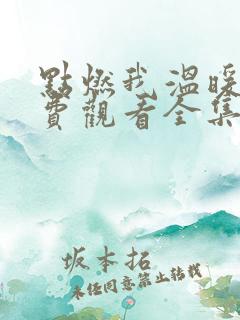 點燃我溫暖
費觀看全集
坂本拓
未经同意禁止转载